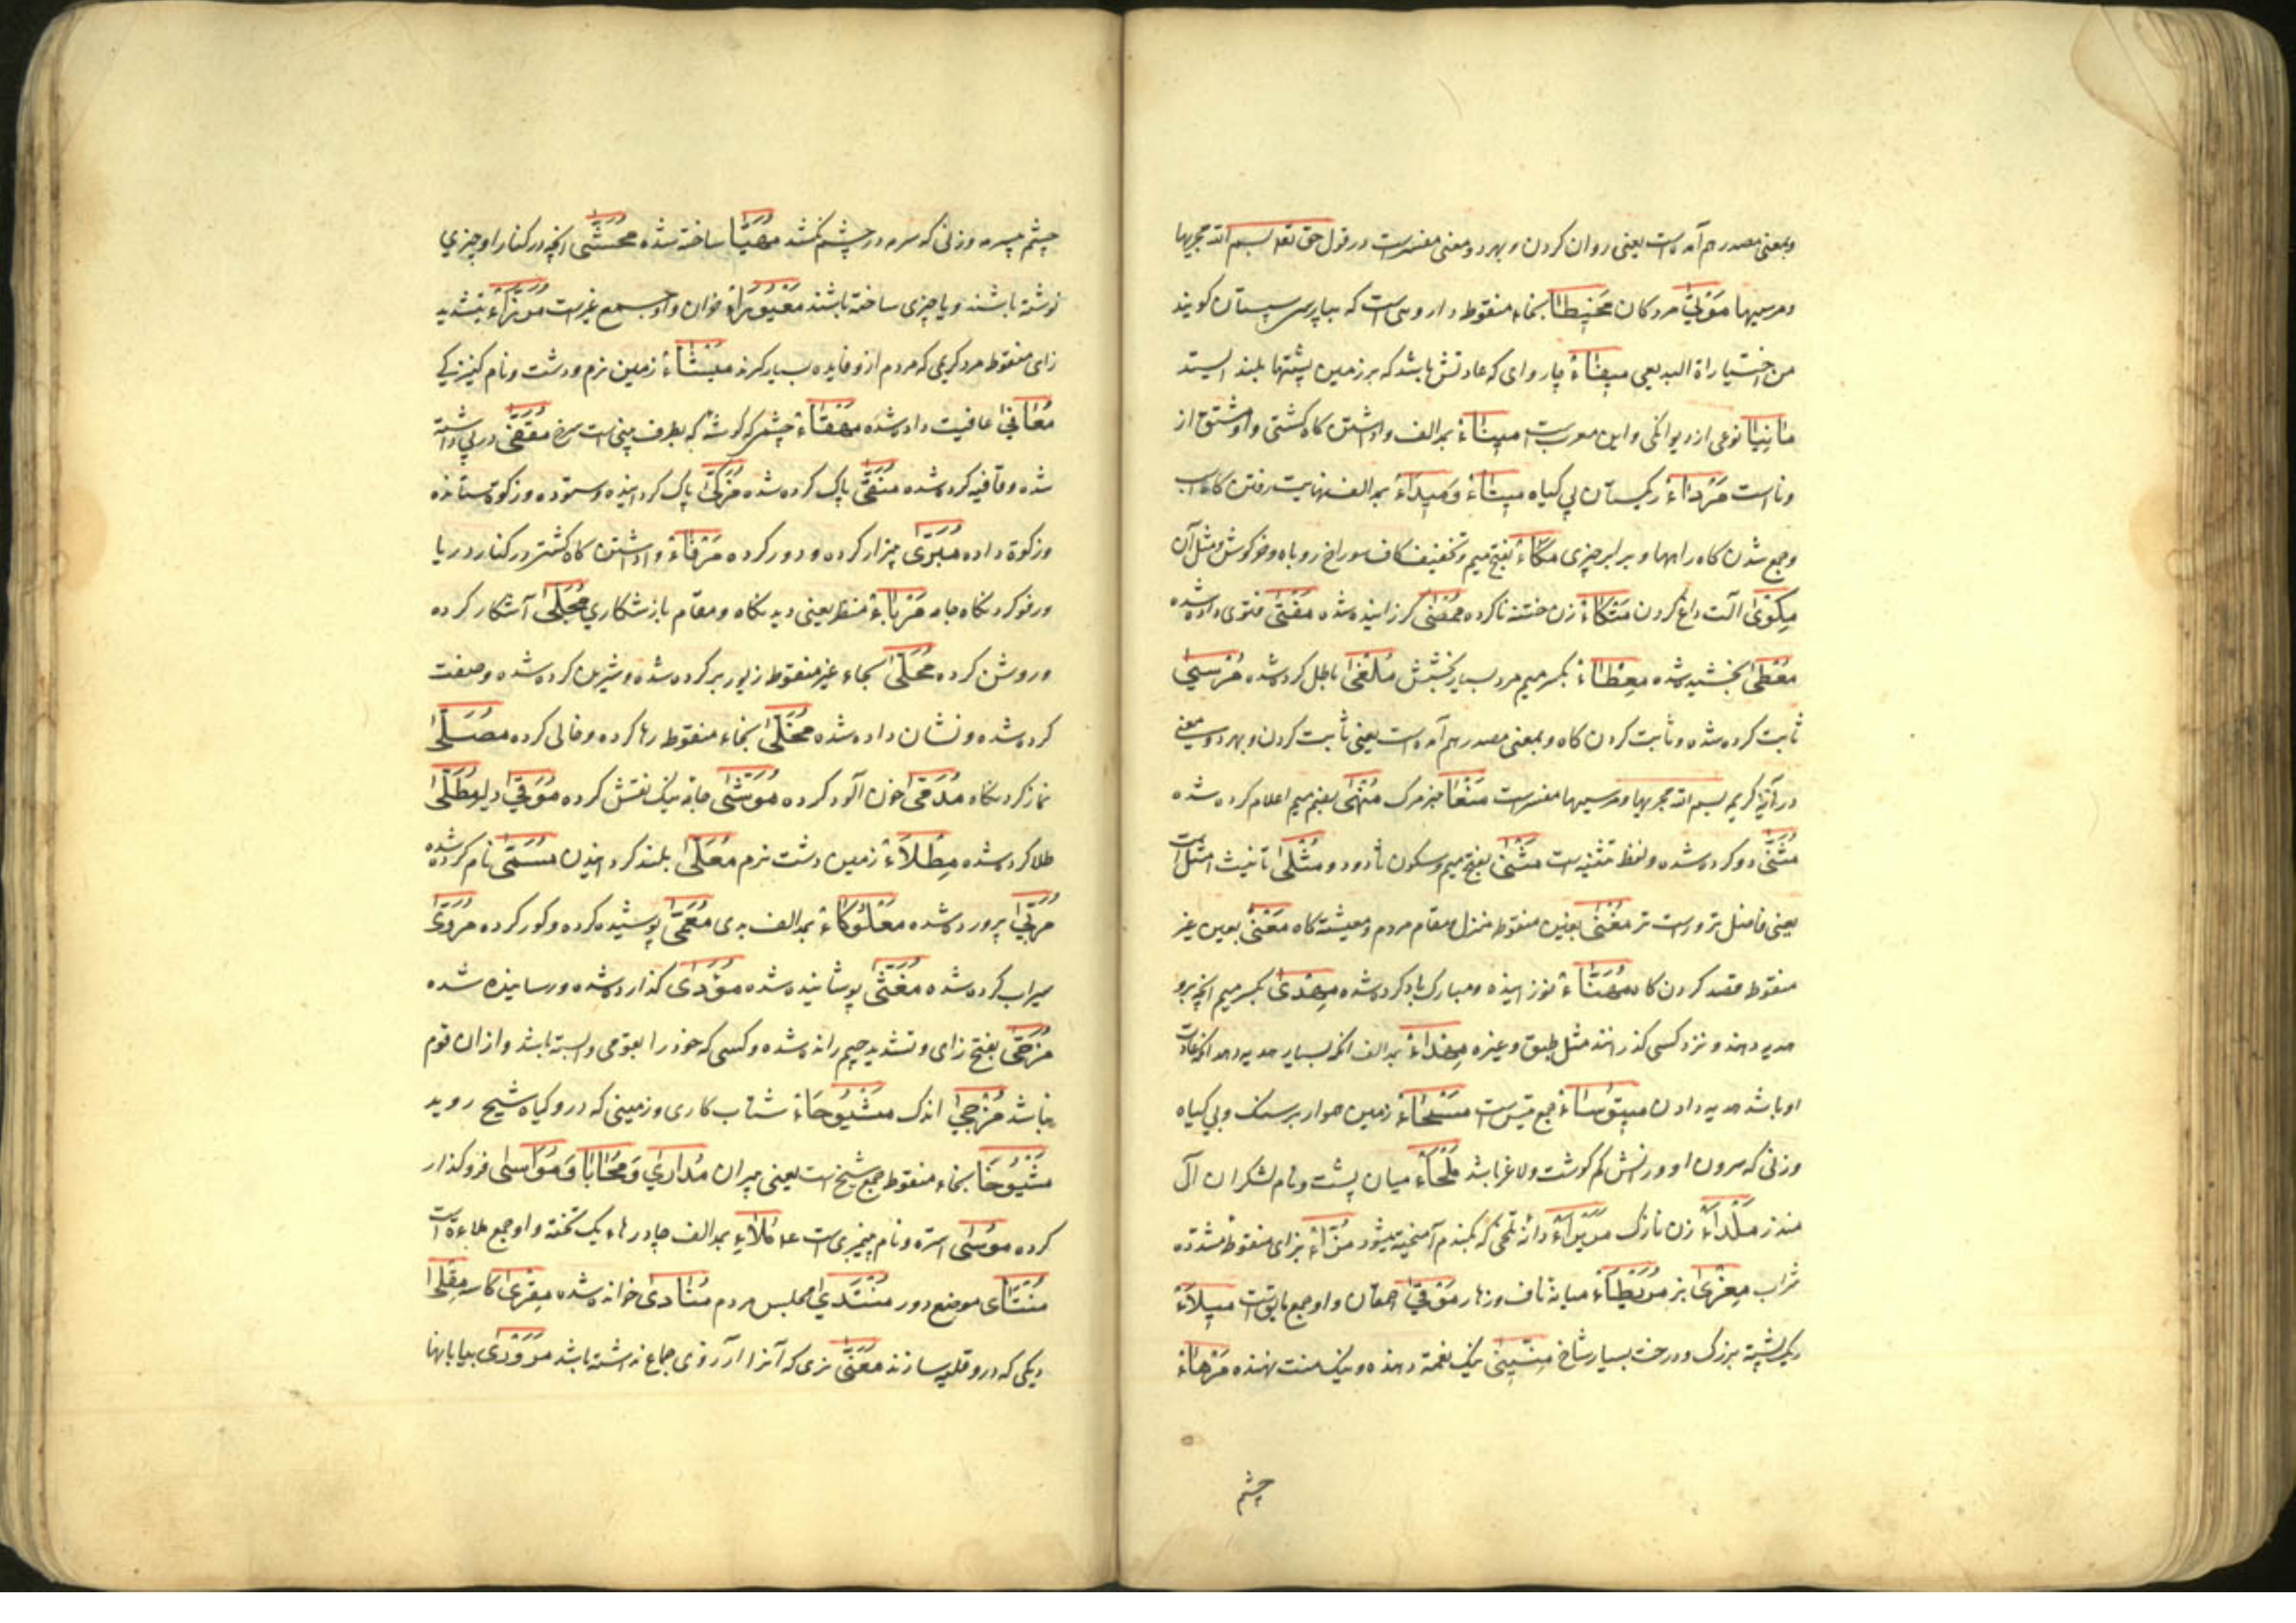 وبمعنی مصدر هم آمده است یعنی روان کردن و بهر دو معنی مفسرست در قول حق تعه بسم الله مجریها
ومرسیها مَوْتیٰ مردکان مَخِیطَا بخاء منقوط داروی است که بپارسی سپستان کویند
من اختیارات البدیعی میفَاءْ چاروای که عادتش باشد که بر زمین پشتها بلند ایستد
مَانِیَا نوعی از دیوانکی و این معربست مِینَاءْ بمد الف واداشتن کاه کشتی و او مشتق از
وناست مَرْدَاءْ ریکستان بی کیاه مِیتَاءْ وَمِیدَاءْ بمد الف نهایت رفتن کاه اسب
وجمع شدن کاه راهها و برابر چیزی مَکَاءْ بفتح میم وتخفیف کاف سوراخ روباه وخرکوش ومثل آن
مِکْوٰی آلت داغ کردن مَتْکَاءْ زن ختنه ناکرده مُمْضٰی کذرانیده شده مُفْتٰی فتوی داده شده
مُعْطٰی بخشیده شده مِعْطَاءْ بکسر میم مرد بسیار بخشش مُلْغٰی باطل کرده شده مُرْسیٰ
ثابت کرده شده وثابت کردن کاه وبمعنی مصدر هم آمده است یعنی ثابت کردن و بهر دو معنی
در آیة کریمه بسم الله مجریها ومرسیها مفسرست مَنْعَا خبر مرک مُنْهٰی بضم میم اعلام کرده شده
مُثَنّٰی دو کرده شده ولفظ تثنیه است مَثْنٰی بفتح میم وسکون ثا دو دو ومُثْلٰی تانیث امثل است
یعنی فاضل تر وراست تر مَغْنٰی بغین منقوط منزل ومقام مردم ومعیشة کاه مَعْنٰی بعین غیر
منقوط قصد کردن کاه مُهَنَّاءْ نوزانیده ومبارک باد کرده شده مِهْدٰی بکسر میم انچه برو
هدیه دهند و نزد کسی کذرانند مثل طبق وغیره مِهْدَاءْ بمد الف انکه بسیار هدیه دهد انکه عادت
او باشد هدیه دادن مَتْیُوسَاءْ جمع تیس است مَسْحَاءْ زمین هموار بر سنک وبی کیاه
وزنی که سرون او ورانش کم کوشت ولاغر باشد مَلْحَاءْ میان پشت ونام لشکران آل
منذر مَلْدَاءْ زن نازک مُرَیْرَاءْ دانه تلخی که بکندم آمیخته میشود مُزَّاءْ بزای منقوط مشدده
شراب مِعْزٰی بز مُرَیْطَاءْ میانه ناف وزهار مَوْقیٰ احمقان و او جمع مایق است مَیْلَاءْ
ریک پشته بزرک ودرخت بسیار شاخ نیک نغمه دهنده ونیک منت نهنده مَرْهَاءْ
چشم
چشم بیسرمه وزنی که سرمه در چشم نکشد مُهَیَّا ساخته شده مُحَشّٰی انچه در کنار او چیزی
نوشته باشند ویا چیزی ساخته باشند مَعْیُورَاءْ خران واو جمع عیرست مُرَزَّاءْ بتشدید
زای منقوط مرد کریمی که مردم ازو فایده بسیار کیرند مَیْثَاءْ زمین نرم و دشت ونام کنیزکی
مُعَافیٰ عافیت داده شده چشمی که کوشه که بطرف بینی است سرخ مُقَفّٰی در پی داشته
شده وقافیه کرده شده مُنَقّٰی پاک کرده شده مُزَکّٰی پاک کردانیده وستوده وزکوة ستانده
وزکوة داده مُبَرّٰی بیزار کرده ودور کرده مَرْفَاءْ واداشتن کاه کشتی در کنار دریا
ورفو کردنکاه جامه مَرْبَاءْ منظر یعنی دیدنکاه ومقام باز شکاری مُجَلّٰی آشکار کرده
وروشن کرده مُحَلّٰی بحاء غیر منقوط زیور بر کرده شده وشیرین کرده شده وصفت
کرده شده ونشان داده شده مُخَلّٰی بخاء منقوط رها کرده وخالی کرده مُصَلّٰی
نماز کردنکاه مُدَمّٰی خون آلود کرده مُوَشّٰی جامه نیک نقش کرده مُوَقّٰی دلیر مُطَلّٰی
طلا کرده شده مِطْلَاءْ زمین دشت نرم مُعَلّٰی بلند کردانیدن مُسَمّٰی نام کرده شده
مُرَبّٰی پرورده شده مَعْلُوکَاءْ بمد الف بدی مُعَمّٰی پوشیده کرده وکور کرده مُرَوّٰی
سیراب کرده شده مُغَشّٰی پوشانیده شده مُؤَدّٰی کذارده شده ورسانیده شده
مُزَجّٰی بفتح زای وتشدید جیم رانده شده وکسی که خود را بقومی وابسته باشد واز ان قوم
نباشد مُزْجیٰ اندک مَشْیُوحَاءْ شتاب کاری وزمینی که درو کیاه شیح روید
مَشْیُوخَا بخاء منقوط جمع شیخ است یعنی پیران مُدَارٰی وَمُحَابَا وَمُوَاسٰی فروکذار
کرده مُوسٰی استره ونام پیغمبری است عه مُلَاءْ بمد الف چادرهاء یک تخته واو جمع ملاءة است
مُنْتَاٰی موضع دور مُنْتَدٰی مجلس مردم مُنَادٰی خوانده شده مِقْرٰی کاسه مِقْلٰی
دیکی که درو قلیه سازند مُعَنّٰی نری که آنرا از آرزوی جماع نداشته باشد مَرَوْرٰی بیابانها